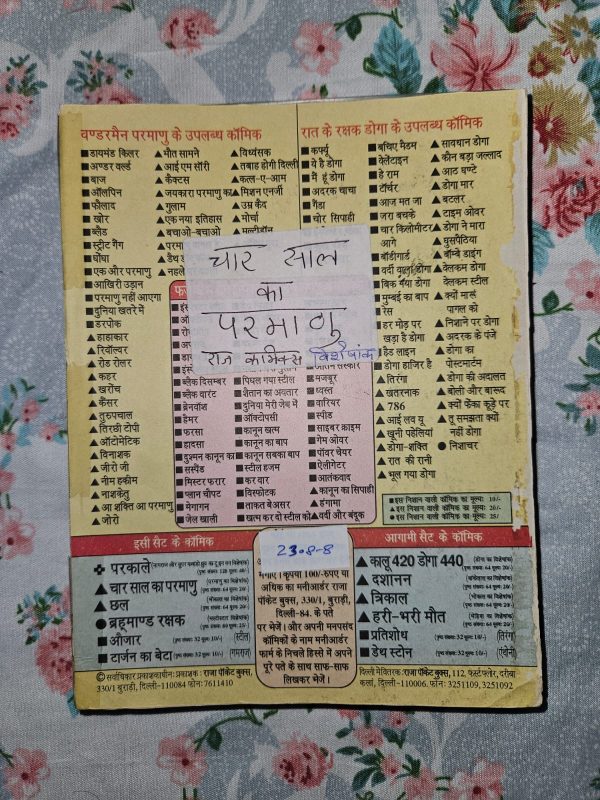 वण्डरमैन परमाणु के उपलब्ध कॉमिक
■डायमंड किलर
■अण्डर वर्ल्ड
■बाज
■ऑलपिन
■फौलाद
■खोर
■ब्लैड
■स्ट्रीट गैंग
■घोंघा
■एक और परमाणु
■आखिरी उड़ान
■परमाणु नहीं आएगा
■दुनिया खतरे में
■डरपोक
▲हाहाकार
▲रिवॉल्वर
▲रोड रोलर
▲कहर
▲खरोंच
▲कैंसर
▲तुरुपचाल
▲तिरछी टोपी
▲ऑटोमेटिक
▲विनाशक
▲जीरो जी
▲नीम हकीम
▲नाशकेतु
▲आ शक्ति आ परमाणु
▲जोरो
▲मौत सामने
▲आई एम सॉरी
▲कैक्टस
▲जयकारा परमाणु का
▲गुलाम
▲एक नया इतिहास
▲बचाओ-बचाओ
▲विध्वंसक
▲तबाह होगी दिल्ली
▲कत्ल-ए-आम
▲मिशन एनर्जी
▲उम्र कैद
▲मोर्चा
चार साल
का
परमाणु
राज कॉमिक्स विशेषांक
■ब्लैक दिसम्बर
■ब्लैक वारंट
■ब्रेनवॉश
■हैमर
■फरसा
■हादसा
■दुश्मन कानून का
■सस्पेंड
■मिस्टर फरार
■प्लान चौपट
■मेगागन
■जेल खाली
■पिघल गया स्टील
■शैतान का अवतार
■दुनिया मेरी जेब में
■ऑक्टोपसी
■कानून खत्म
■कानून का बाप
■कानून सबका बाप
■स्टील हजम
■कर वार
■विस्फोटक
■ताकत बेअसर
■खत्म कर दो स्टील को
■मजबूर
■ध्वस्त
■वारियर
■स्पीड
■साइबर क्राइम
■गेम ओवर
■पॉवर चेयर
■ऐलीगेटर
■आतंकवाद
■कानून का सिपाही
▲हंगामा
▲वर्दी और बंदूक
रात के रक्षक डोगा के उपलब्ध कॉमिक
■कर्फ्यू
■ये है डोगा
■मैं हूं डोगा
■अदरक चाचा
■गैंडा
■चोर सिपाही
■बॉडीगार्ड
■हैड लाइन
▲तिरंगा
▲खतरनाक
▲786
▲आई लव यू
▲खूनी पहेलियां
▲डोगा-शक्ति
▲रात की रानी
▲भूल गया डोगा
■बचिए मैडम
■वैलेंटाइन
■हे राम
■टॉर्चर
■आज मत जा
■जरा बचके
■चार किलोमीटर
आगे
■वर्दी वाला डोगा
■बिक गया डोगा
■मुम्बई का बाप
■रेस
■हर मोड़ पर
खड़ा है डोगा
■डोगा हाजिर है
▲सावधान डोगा
▲कौन बड़ा जल्लाद
▲आठ घण्टे
▲डोगा मार
▲बटलर
▲टाइम ओवर
▲डोगा ने मारा
▲घुसपैठिया
▲बॉम्बे डाइंग
▲वेलकम डोगा
▲वेलकम स्टील
▲क्यों मारूं
पागल को
▲निशाने पर डोगा
▲अदरक के पंजे
▲डोगा का
पोस्टमार्टम
▲डोगा की अदालत
▲बोली और बारूद
▲क्यों फेंका कूड़े पर
▲तू समझता क्यों
नहीं डोगा
●निशाचर
■इस निशान वाली कॉमिक का मूल्य: 10/-
▲इस निशान वाली कॉमिक का मूल्य: 20/-
●इस निशान वाली कॉमिक का मूल्य: 25/-
इसी सैट के कॉमिक
✚ परकाले
▲ चार साल का परमाणु
▲ छल
● ब्रह्माण्ड रक्षक
■ औजार (स्टील)
■ टार्जन का बेटा (गमराज)
23-8-8
मंगाएं। कृपया 100/-रुपए या
अधिक का मनीआर्डर राजा
पॉकेट बुक्स, 330/1, बुराड़ी,
दिल्ली-84. के पते
पर भेजें। और अपनी मनपसंद
कॉमिकों के नाम मनीआर्डर
फार्म के निचले हिस्से में अपने
पूरे पते के साथ साफ-साफ
लिखकर भेजें।
आगामी सैट के कॉमिक
▲ कालू 420 डोगा 440
▲ दशानन
▲ त्रिकाल
▲ हरी-भरी मौत
■ प्रतिशोध (तिरंगा)
■ डैथ स्टोन (एंथोनी)
© सर्वाधिकार प्रकाशकाधीन: प्रकाशक: राजा पॉकेट बुक्स,
330/1 बुराड़ी, दिल्ली-110084 फोन: 7611410
दिल्ली में वितरक: राजा पॉकेट बुक्स, 112, फर्स्ट फ्लोर, दरीबा
कलां, दिल्ली-110006. फोन: 3251109, 3251092